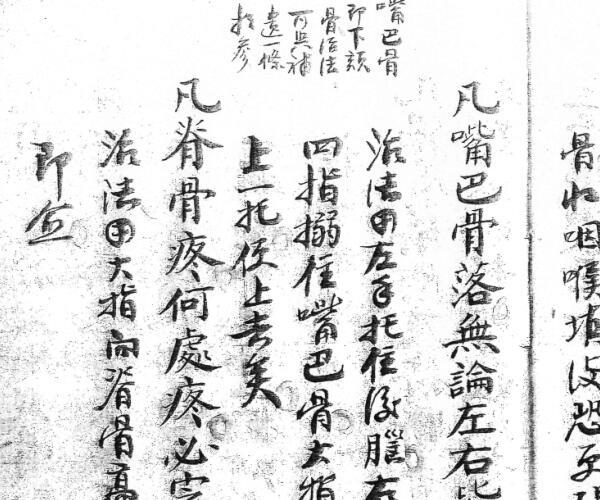 骨壯咽喉填没恐牙
凡嘴巴骨落無論左右皆
治法用左手托住後腦右
四指搦住嘴巴骨大指
上一托便上去矣
凡脊骨疼何處疼必定
治法用大指向脊骨高
即愈
嘴巴骨
即下頦
骨治法
可與補
遺一條
指參